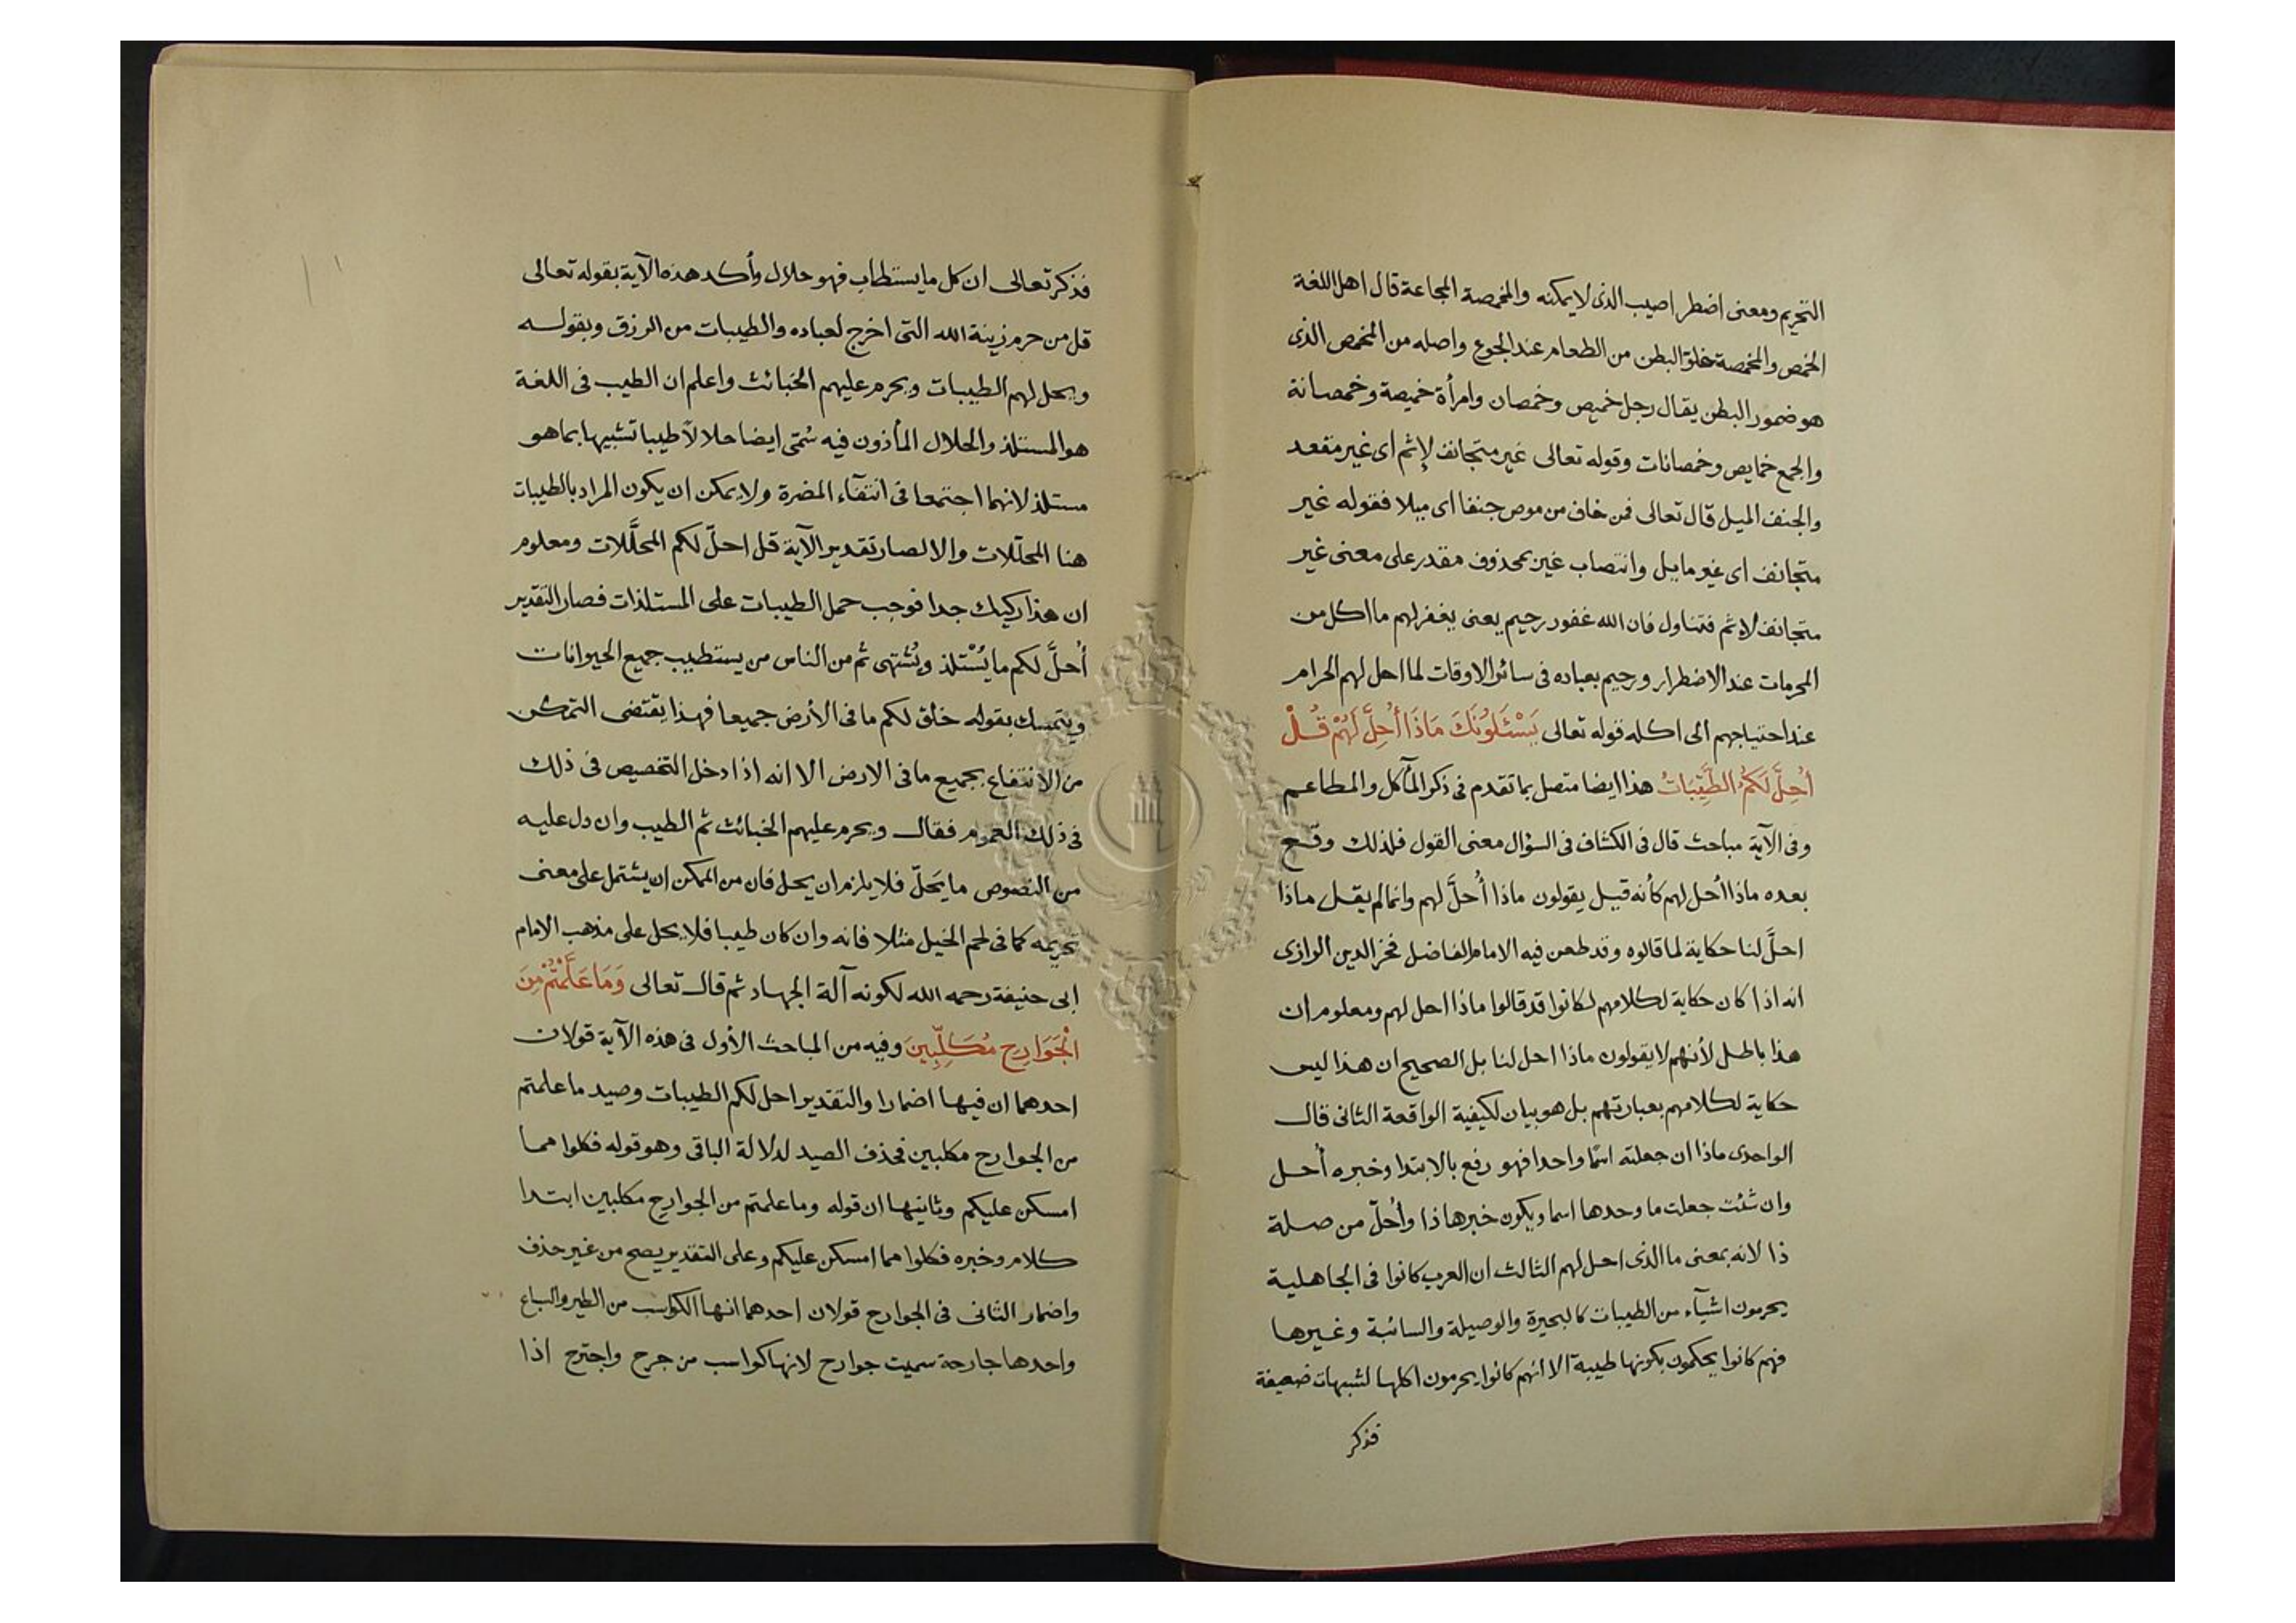 التحريم ومعنى اضطر اصيب الذى لا يمكنه والمخمصة المجاعة قال اهل اللغة
الخمص والمخمصة خلو البطن من الطعام عند الجوع واصله من الخمص الذى
هو ضمور البطن يقال رجل خميص وخمصان وامرأة خميصة وخمصانة
والجمع خمايص وخمصانات وقوله تعالى غير متجانف لإثم اى غير متعمد
والجنف الميل قال تعالى فمن خاف من موص جنفا اى ميلا فقوله غير
متجانف اى غير مايل وانتصاب غير بمحذوف مقدر على معنى غير
متجانف لاثم فتناول فان الله غفور رحيم يعنى يغفر لهم ما اكل من
المحرمات عند الاضطرار ورحيم بعباده فى سائر الاوقات لما احل لهم الحرام
عند احتياجهم الى اكله قوله تعالى يَسْئَلُونَكَ مَاذَا أُحِلَّ لَهُمْ قُلْ
أُحِلَّ لَكُمُ الطَّيِّبَاتُ هذا ايضا متصل بما تقدم فى ذكر المآكل والمطاعم
وفى الآية مباحث قال فى الكشاف فى السؤال معنى القول فلذلك وقع
بعده ماذا أحل لهم كأنه قيل يقولون ماذا أُحلَّ لهم وانما لم يقل ماذا
احلَّ لنا حكاية لما قالوه وقد طعن فيه الامام الفاضل فخر الدين الرازى
انه اذا كان حكاية لكلامهم لكانوا قد قالوا ماذا احل لهم ومعلوم ان
هذا باطل لأنهم لا يقولون ماذا احل لنا بل الصحيح ان هذا ليس
حكاية لكلامهم بعبارتهم بل هو بيان لكيفية الواقعة الثانى قال
الواحدى ماذا ان جعلته اسمًا واحدا فهو رفع بالابتدا وخبره أحل
وان شئت جعلت ما وحدها اسما ويكون خبرها ذا وأُحلّ من صلة
ذا لانه بمعنى ما الذى احل لهم الثالث ان العرب كانوا فى الجاهلية
يحرمون اشيآء من الطيبات كالبحيرة والوصيلة والسائبة وغيرها
فهم كانوا يحكمون بكونها طيبة الا انهم كانوا يحرمون اكلها لشبهات ضعيفة
فذكر
فذكر تعالى ان كل ما يستطاب فهو حلال وأكد هذه الآية بقوله تعالى
قل من حرم زينة الله التى اخرج لعباده والطيبات من الرزق وبقوله
ويحل لهم الطيبات ويحرم عليهم الخبائث واعلم ان الطيب فى اللغة
هو المستلذ والحلال المأذون فيه سُمّى ايضا حلالاً طيبا تشبيها بما هو
مستلذ لانهما اجتمعا فى انتفآء المضرة ولا يمكن ان يكون المراد بالطيبات
هنا المحلّلات والا لصار تقدير الآية قل احلّ لكم المحلَّلات ومعلوم
ان هذا ركيك جدا فوجب حمل الطيبات على المستلذات فصار التقدير
أُحلَّ لكم ما يُسْتلذ ويُشتهى ثم من الناس من يستطيب جميع الحيوانات
ويتمسك بقوله خلق لكم ما فى الأرض جميعا فهذا يقتضى التمكن
من الانتفاع بجميع ما فى الارض الا انه اذا دخل التخصيص فى ذلك
فى ذلك العموم فقال ويحرم عليهم الخبائث ثم الطيب وان دل عليه
من النصوص ما يَحلّ فلا يلزم ان يحل فان من الممكن ان يشتمل على معنى
تحريمه كما فى لحم الخيل مثلا فانه وان كان طيبا فلا يحل على مذهب الامام
ابى حنيفة رحمه الله لكونه آلة الجهاد ثم قال تعالى وَمَا عَلَّمْتُمْ مِنَ
الْجَوَارِحِ مُكَلِّبِينَ وفيه من المباحث الأول فى هذه الآية قولان
احدهما ان فيها اضمارا والتقدير احل لكم الطيبات وصيد ما علمتم
من الجوارح مكلبين فحذف الصيد لدلالة الباقى وهو قوله فكلوا مما
امسكن عليكم وثانيها ان قوله وما علمتم من الجوارح مكلبين ابتدا
كلام وخبره فكلوا مما امسكن عليكم وعلى التقدير يصح من غير حذف
واضمار الثانى فى الجوارح قولان احدهما انها الكواسب من الطير والسباع
واحدها جارحة سميت جوارح لانها كواسب من جرح واجترح اذا